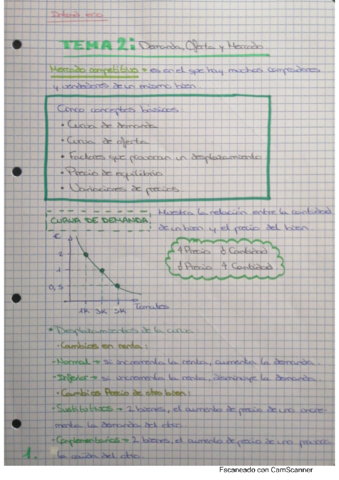 TEMA 2: Demanda, Oferta y Mercado
Mercado competitivo → es en el que hay muchos compradores
y vendedores de un mismo bien
Cinco conceptos básicos
• Curva de demanda
• Curva de oferta
• Factores que provocan un desplazamiento
• Precio de equilibrio
• Variaciones de precios
CURVA DE DEMANDA
Muestra la relación entre la cantidad
de un bien y el precio del bien.
↑ Precio ↓ Cantidad
↓ Precio ↑ Cantidad
€
2
1
0,5
1K 3K 5K
* Desplazamientos de la curva
• Cambios en renta:
- Normal → si incrementa la renta, aumenta la demanda.
- Inferior → si incrementa la renta, disminuye la demanda.
• Cambios Precio de otro bien:
- Sustitutivos → 2 bienes, el aumento de precio de uno incre-
menta la demanda del otro.
- Complementarios → 2 bienes, el aumento de precio de uno provoca
la caída del otro.
1.
Escaneado con CamScanner